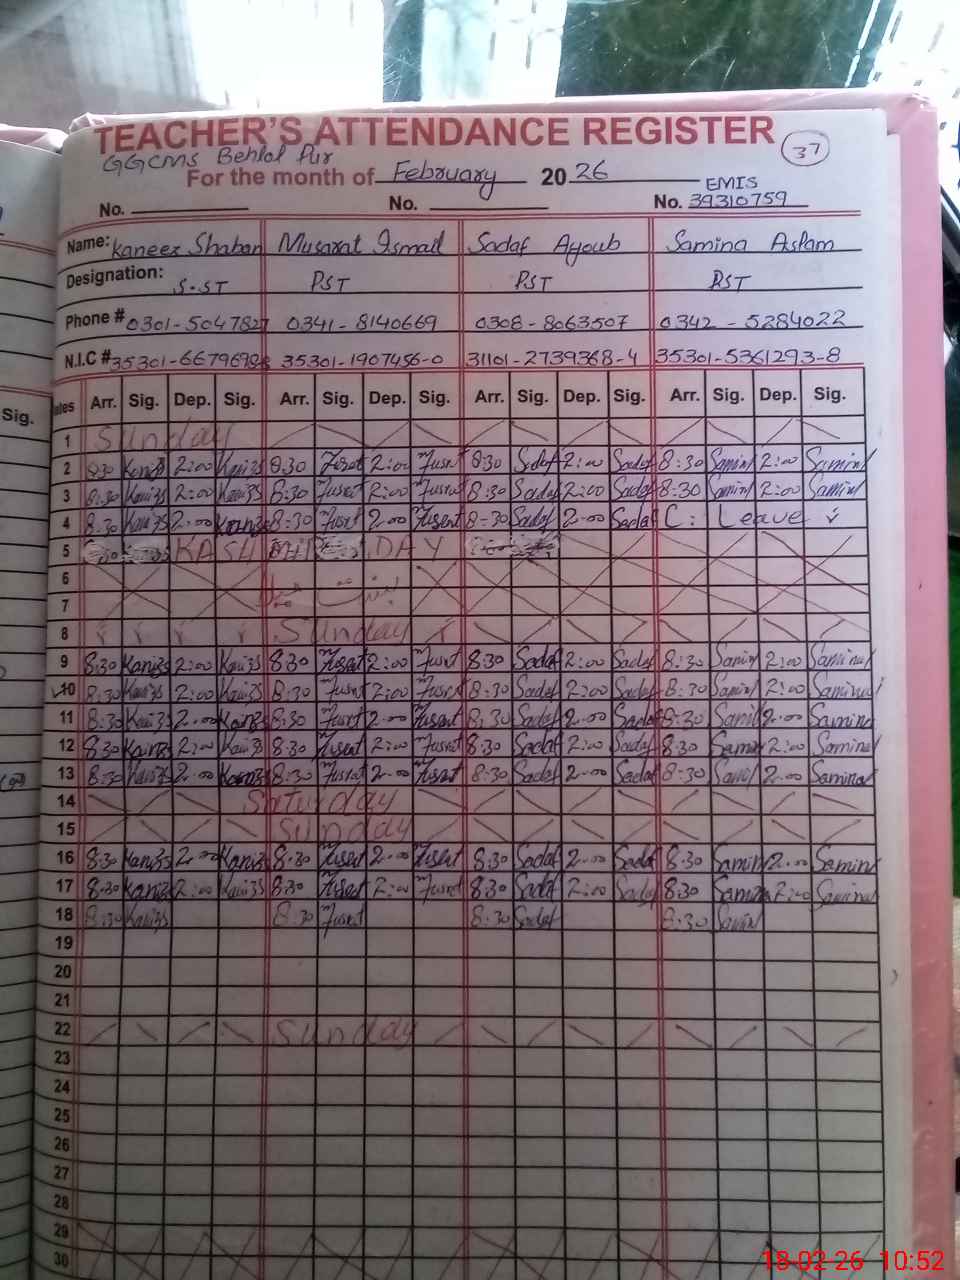 TEACHER'S ATTENDANCE REGISTER
37
GGCMS Behlol Pur
For the month of February 20 26
EMIS
No. No. No. 39310759
Name: Kaneez Shaban Musarat Ismail Sadaf Ayoub Samina Aslam
Designation: S.ST PST PST PST
Phone # 0301-5047827 0341-8140669 0308-8063507 0342-5284022
N.I.C # 35301-6679698 35301-1907456-0 31101-2739368-4 35301-5361293-8
Sig. Arr. Sig. Dep. Sig. Arr. Sig. Dep. Sig. Arr. Sig. Dep. Sig. Arr. Sig. Dep. Sig.
1 Sunday
2 8:30 Kanizs 2:00 Kanizs 8:30 2:00 Musrat 8:30 Sadaf 2:00 Sadaf 8:30 Samina 2:00 Samina
3 8:30 Kanizs 2:00 Kanizs 8:30 Musrat 2:00 Musrat 8:30 Sadaf 2:00 Sadaf 8:30 Samina 2:00 Samina
4 8:30 Kanizs 2:00 Kanizs 8:30 Musrat 2:00 Musrat 8:30 Sadaf 2:00 Sadaf C: Leave
5 KASHMIR DAY
6
7 بسنت
8 Sunday
9 8:30 Kanizs 2:00 Kanizs 8:30 Musrat 2:00 Musrat 8:30 Sadaf 2:00 Sadaf 8:30 Samina 2:00 Samina
10 8:30 Kanizs 2:00 Kanizs 8:30 Musrat 2:00 Musrat 8:30 Sadaf 2:00 Sadaf 8:30 Samina 2:00 Samina
11 8:30 Kanizs 2:00 Kanizs 8:30 Musrat 2:00 Musrat 8:30 Sadaf 2:00 Sadaf 8:30 Samina 2:00 Samina
12 8:30 Kanizs 2:00 Kanizs 8:30 Musrat 2:00 Musrat 8:30 Sadaf 2:00 Sadaf 8:30 Samina 2:00 Samina
13 8:30 Kanizs 2:00 Kanizs 8:30 Musrat 2:00 Musrat 8:30 Sadaf 2:00 Sadaf 8:30 Samina 2:00 Samina
14 Saturday
15 Sunday
16 8:30 Kanizs 2:00 Kanizs 8:30 Musrat 2:00 Musrat 8:30 Sadaf 2:00 Sadaf 8:30 Samina 2:00 Samina
17 8:30 Kanizs 2:00 Kanizs 8:30 Musrat 2:00 Musrat 8:30 Sadaf 2:00 Sadaf 8:30 Samina 2:00 Samina
18 8:30 Kanizs 8:30 Musrat 8:30 Sadaf 8:30 Samina
19
20
21
22 Sunday
23
24
25
26
27
28
29
30
18-02-26 10:52